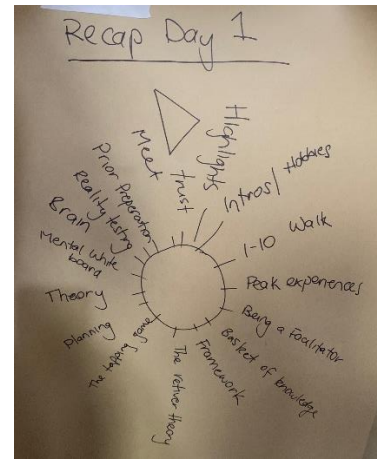 Recap Day 1
Highlights
trust
Meet
Intros/ Hobbies
1-10 Walk
Peak experiences
Being a Facilitator
Basket of knowledge
Framework
The tapping game
Planning
Theory
Mental white
board
Brain
Reality testing
Prior Preparation